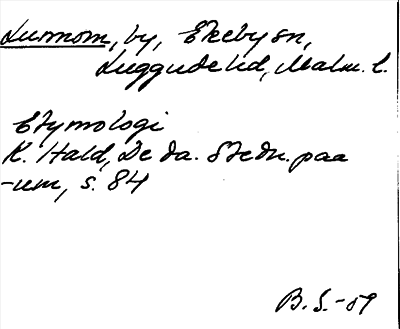 Lunnom, by, Ekeby sn,
Luggude hd, Malm. l.
Etymologi
K. Hald, De da. Stedn. paa
-um, s. 84
B. S. -59